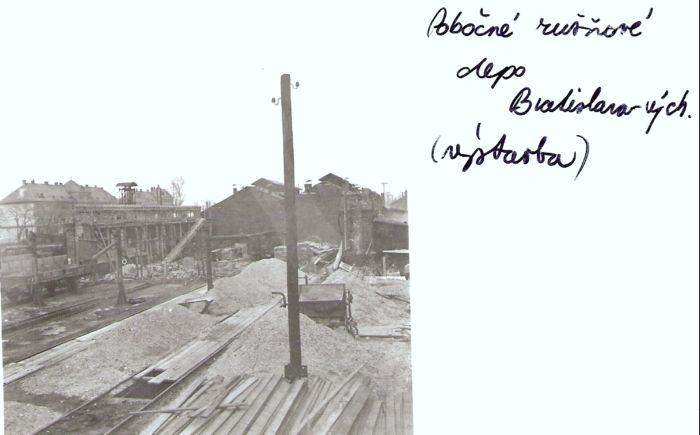 Pobočné rušňové
depo
Bratislava-vých.
(výstavba)